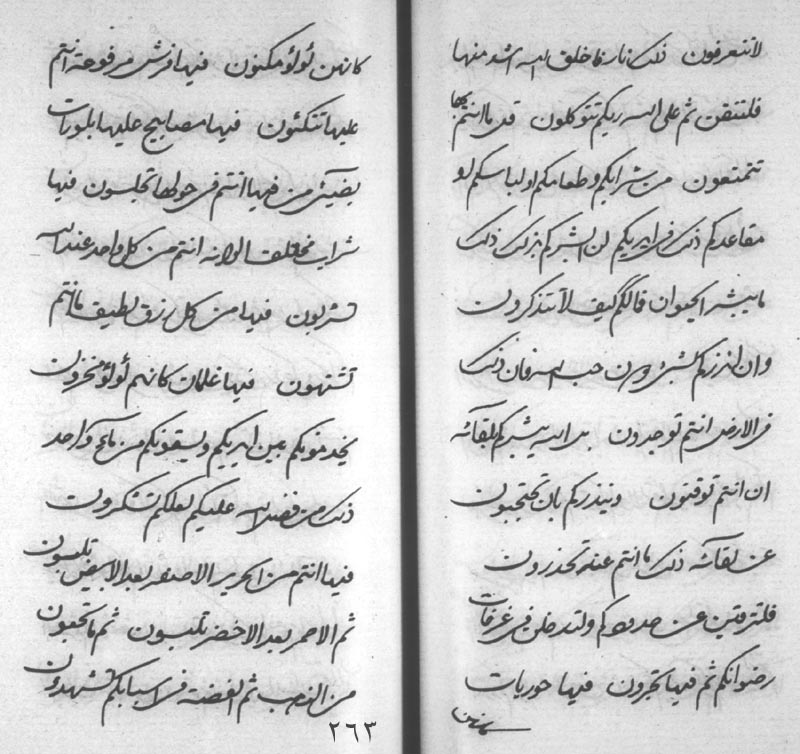 لا تتعرفون ذلك نار ما خلق الله اشد منها
فلتتقن ثم على الله ربكم تتوكلون قل ما انتم بها
تتمتعون من شرابكم وطعامكم او لباسكم او
مقاعدكم ذلك في ايديكم لن ابشركم بذلك ذلك
ما يبشر الحيوان فمالكم كيف لا تتذكرون
وان انذركم بشيء دون حب الله فان ذلك
في الارض انتم توجدون بل الله يبشركم بلقائه
ان انتم توقنون وينذركم بان تحتجبون
عن لقائه ذلك ما انتم عنه تحذرون
فلترقين عن حدودكم ولتدخلن في غرفات
رضوانكم ثم فيها تحبرون فيها حوريات
كانهن
كانهن لؤلؤ مكنون فيها فرش مرفوعة انتم
عليها تتكئون فيها مصابيح عليها بلورات
يضيئ من فيها انتم في حولها تجلسون فيها
شراب مختلف الوانه انتم من كل واحد عند الله
تشربون فيها من كل رزق لطيف ما انتم
تشتهون فيها غلمان كانهم لؤلؤ مخزون
يخدمونكم بين ايديكم ويسقونكم من ماء واحد
ذلك من فضل الله عليكم لعلكم تشكرون
فيها انتم من الحرير الاصفر بعد الابيض تلبسون
ثم الاحمر بعد الاخضر تلبسون ثم ما تحبون
من الذهب ثم الفضة في اسبابكم تشهدون
٢٦٣